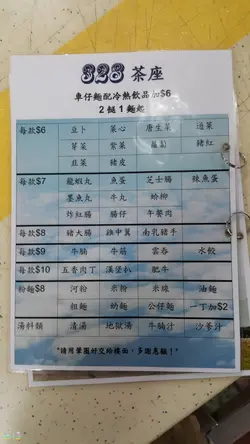 328 茶座
車仔麵配冷熱飲品加$6
2 餸 1 麵起
每款$6 豆卜 菜心 唐生菜 通菜
芽菜 紫菜 蘿蔔 豬紅
韭菜 豬皮
每款$7 龍蝦丸 魚蛋 芝士腸 辣魚蛋
墨魚丸 牛丸 蛤柳
炸紅腸 腸仔 午餐肉
每款$8 豬大腸 雞中翼 南乳豬手
每款$9 牛腩 牛筋 雲吞 水餃
每款$10 五香肉丁 漢堡扒 肥牛
粉麵$8 河粉 米粉 米線 油麵
粗麵 幼麵 公仔麵 一丁加$2
湯料類 清湯 地獄湯 牛腩汁 沙爹汁
"請用筆圈好交給樓面，多謝惠顧！"